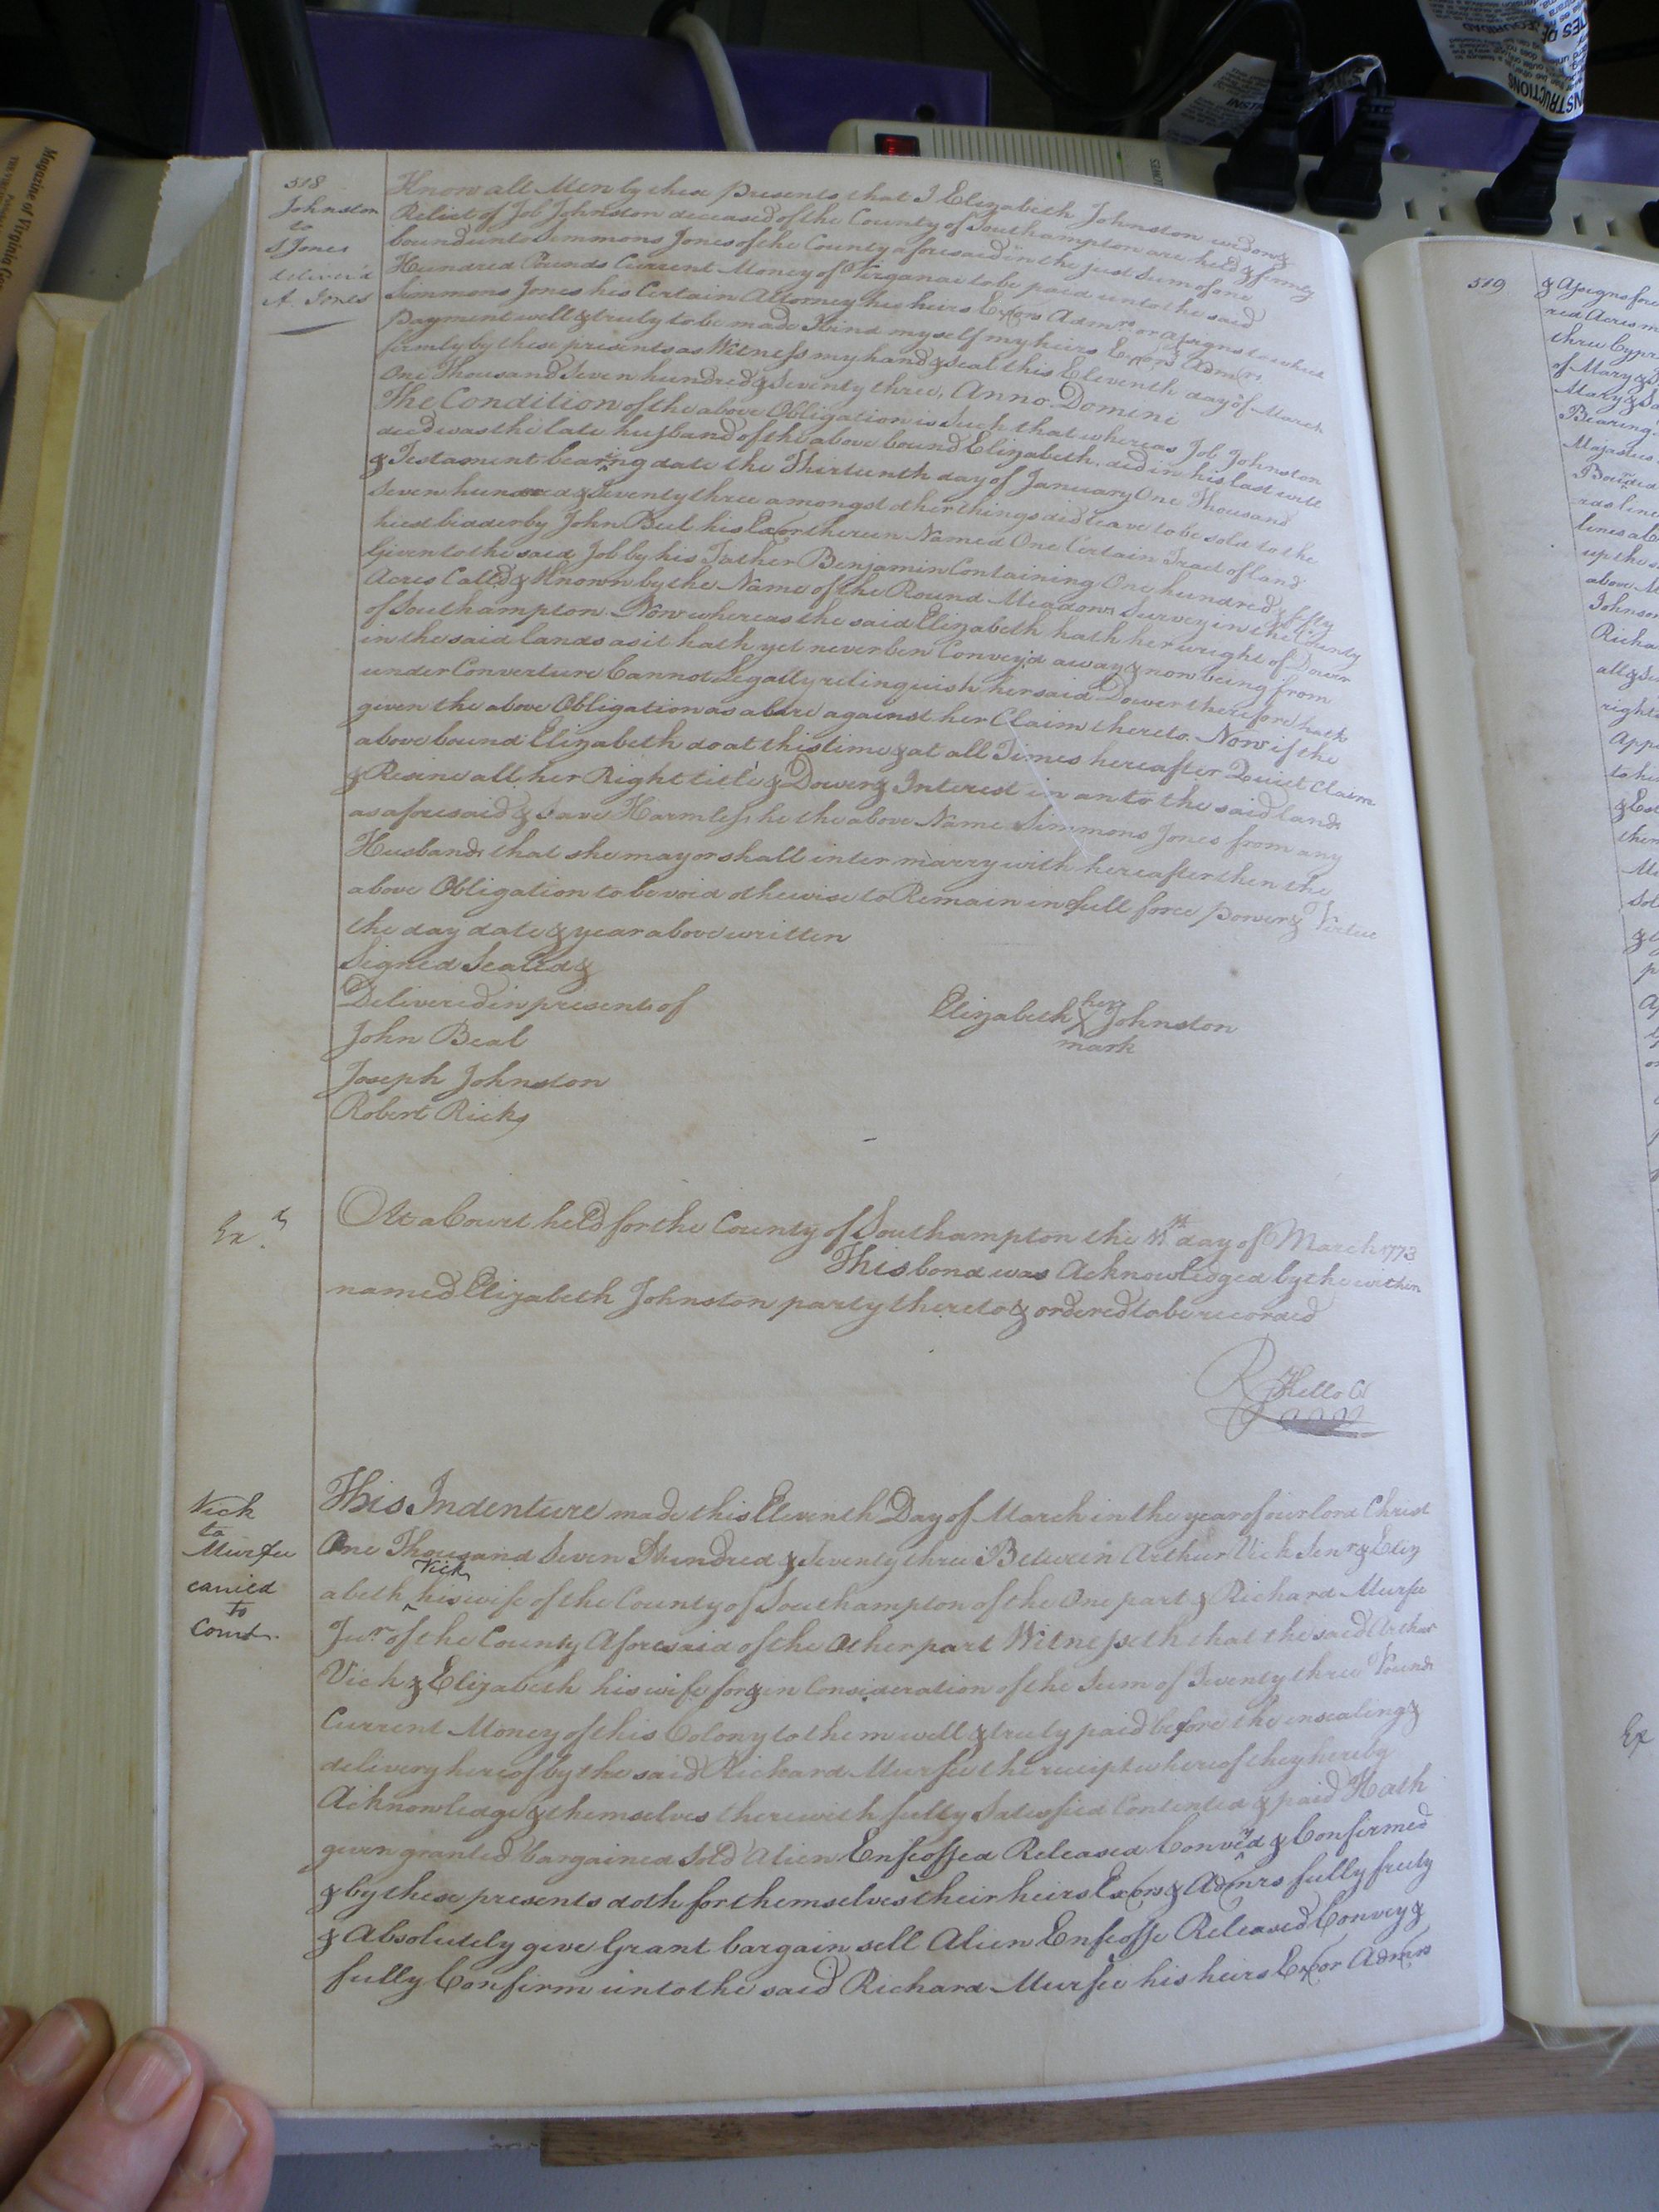 518
Johnston
to
S Jones
deliver'd
A. Jones
Know all Men by these Presents that I Elizabeth Johnston widow &
Relict of Job Johnston deceased of the County of Southampton are held & firmly
bound unto Simmons Jones of the County aforesaid in the just Sum of one
Hundred Pounds Current Money of Virganai to be paid unto the said
Simmons Jones his Certain Attorney his heirs Exors Admrs or assigns to which
Payment well & truly to be made I bind myself my heirs Exors & Admrs
firmly by these presents as Witness my hand & Seal this Eleventh day of March
One Thousand Seven hundred & Seventy three, Anno Domini
The Condition of the above Obligation is Such that whereas Job Johnston
decd was the late husband of the above bound Elizabeth, did in his last will
& Testament bearing date the Thirteenth day of January One Thousand
Seven hundred & Seventy three amongst other things did leave to be sold to the
hiest bidder by John Beel his Exor therein Named One Certain Tract of land
Given to the said Job by his Father Benjamin Containing One hundred & fifty
Acres Call'd & Known by the Name of the Round Meadows Survey in the County
of Southampton. Now whereas the said Elizabeth hath her wright of Dower
in the said lands as it hath yet never ben Convey'd away & now being from
under Converture Cannot Legally relinquish her said Dower therefore hath
given the above Obligation as abare against her Claim thereto. Now if the
above bound Elizabeth do at this time & at all Times hereafter Quiet Claim
& Resine all her Right title & Dower & Interest in an to the said lands
as aforesaid & Save Harmless he the above Name Simmons Jones from any
Husbands that she may or shall inter marry with hereafter then the
above Obligation to be void othewise to Remain in full force power & Virtue
the day date & year above written
Signed Sealed &
Delivered in presents of
John Beal
Joseph Johnston
Robert Ricks
her
Elizabeth X Johnston
mark
Exd
At a Court held for the County of Southampton the 11th day of March 1773
This bond was Acknowledged by the within
named Elizabeth Johnston party thereto & ordered to be recorded
R Kello C
Vick
to
Murfee
carried
to
Court.
This Indenture made this Eleventh Day of March in the year of our lord Christ
One Thousand Seven Hundred & Seventy three Between Arthur Vick Senr & Eliz
abeth Vick his wife of the County of Southampton of the One part & Richard Murfee
Junr of the County Aforesaid of the Other part Witnesseth that the said Arthur
Vick & Elizabeth his wife for & in Consideration of the Sum of Twenty three Pounds
Current Money of this Colony to them well & truly paid before the ensealing &
delivery hereof by the said Richard Murfee the receipt whereof they hereby
Acknowledge & themselves therewith fully Satisfied Contented & paid Hath
given granted bargained Sold Alien Enfeoffed Released Conveyd & Confirmed
& by these presents doth for themselves their heirs Exors & Admrs fully freely
& Absolutely give Grant bargain sell Alien Enfeoffe Released Convey &
fully Confirm unto the said Richard Murfee his heirs Exor Admrs
519
& Assigns fore
red Acres m
three Cypr
of Mary
Bearing
Johnson
Richa
right
to his
Ex
Magazine of Virginia Ge